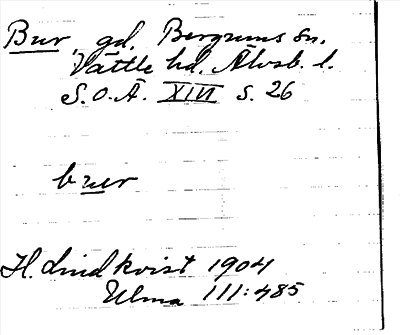 Bur, gd. Bergums sn.
Vättle hd. Älvsb. l.
S.O.Ä. XIII s. 26
bur
H. Lindkvist 1904
Ulma 111:485